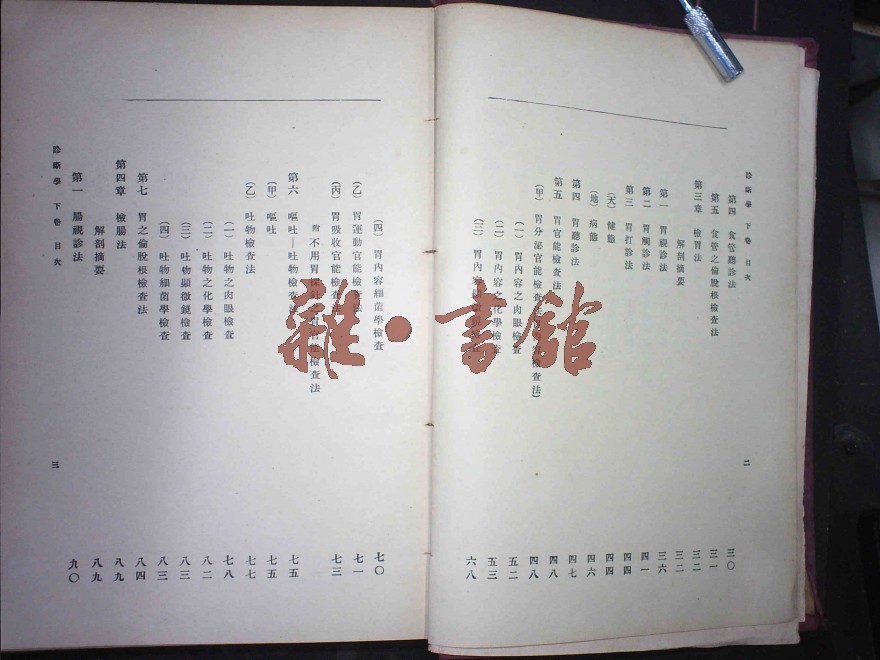 診斷學 下卷 目次 二
第四 食管聽診法 三〇
第五 食管之倫脫根檢查法 三一
第三章 檢胃法 三二
解剖摘要 三二
第一 胃視診法 三六
第二 胃觸診法 四一
第三 胃打診法 四四
(天) 健態 四四
(地) 病態 四六
第四 胃聽診法 四七
第五 胃官能檢查法 四八
(甲) 胃分泌官能檢查法 檢查法) 四八
(一) 胃內容之肉眼檢查 五二
(二) 胃內容之化學檢查 五三
(三) 胃內容 檢查 六八
(四) 胃內容細菌學檢查 七〇
(乙) 胃運動官能檢查法 七一
(丙) 胃吸收官能檢查法 七三
附 不用胃 官能檢查法
第六 嘔吐—吐物檢查法 七五
(甲) 嘔吐 七五
(乙) 吐物檢查法 七七
(一) 吐物之肉眼檢查 七八
(二) 吐物之化學檢查 八二
(三) 吐物顯微鏡檢查 八三
(四) 吐物細菌學檢查 八三
第七 胃之倫脫根檢查法 八四
第四章 檢腸法 八九
解剖摘要 八九
第一 腸視診法 九〇
診斷學 下卷 目次 三
雜·書館